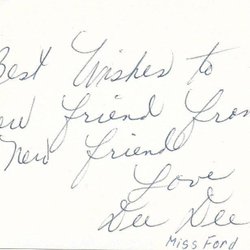 Best Wishes to
new friend from
New friend
Love
Dee Dee
Miss Ford